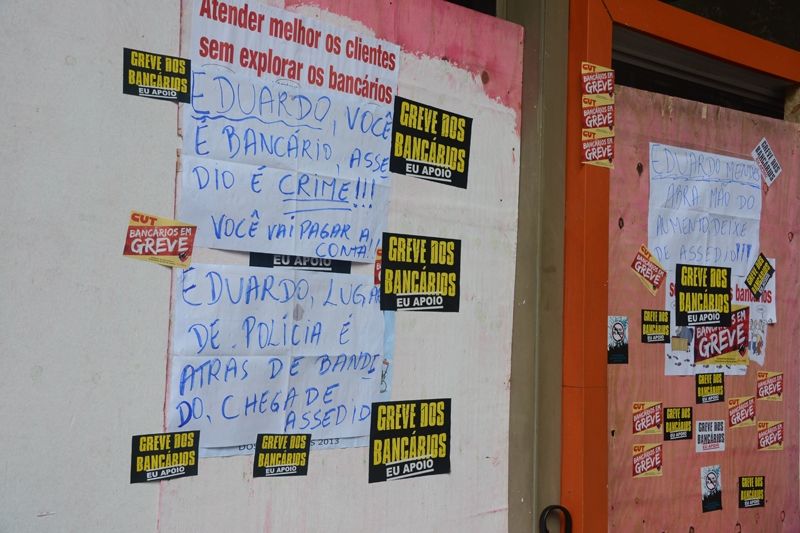 Atender melhor os clientes
sem explorar os bancários
EDUARDO, VOCÊ
É BANCÁRIO, ASSE
DIO É CRIME!!!
VOCÊ VAI PAGAR A
CONTA!
EDUARDO, LUGAR
DE POLÍCIA É
ATRÁS DE BANDI
DO, CHEGA DE
ASSEDIO
2013
GREVE DOS
BANCÁRIOS
EU APOIO
GREVE DOS
BANCÁRIOS
EU APOIO
CUT
BANCÁRIOS EM
GREVE
EU APOIO
GREVE DOS
BANCÁRIOS
EU APOIO
GREVE DOS
BANCÁRIOS
EU APOIO
GREVE DOS
BANCÁRIOS
EU APOIO
GREVE DOS
BANCÁRIOS
EU APOIO
CUT
BANCÁRIOS EM
GREVE
BANCÁRIOS EM
GREVE
BANCÁRIOS EM
GREVE
EDUARDO
ABRA MÃO DO
AUMENTO, DEIXE
DE ASSEDIO!!!
GREVE DOS
BANCÁRIOS
BANCÁRIOS EM
GREVE
GREVE DOS
BANCÁRIOS
EU APOIO
GREVE DOS
BANCÁRIOS
GREVE DOS
BANCÁRIOS
EU APOIO
BANCÁRIOS EM
GREVE
GREVE DOS
BANCÁRIOS
EU APOIO
CUT
BANCÁRIOS EM
GREVE
CUT
BANCÁRIOS EM
GREVE
GREVE DOS
BANCÁRIOS
EU APOIO
CUT
BANCÁRIOS EM
GREVE
GREVE DOS
BANCÁRIOS
CUT
BANCÁRIOS EM
GREVE
CUT
BANCÁRIOS EM
GREVE
GREVE DOS
BANCÁRIOS
EU APOIO